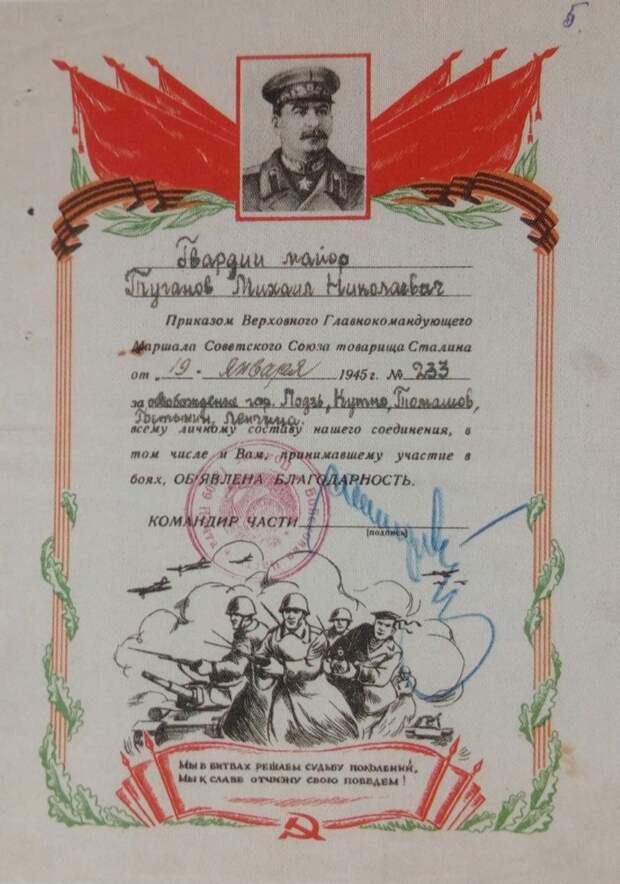 5.
Гвардии майор
Туганов Михаил Николаевич
Приказом Верховного Главнокомандующего
Маршала Советского Союза товарища Сталина
от „19 - января 1945 г. № 233
за освобождение гор. Лодзь, Кутно, Томашов,
Гостынин, Ленчица.
всему личному составу нашего соединения, в
том числе и Вам, принимавшему участие в
боях, ОБ'ЯВЛЕНА БЛАГОДАРНОСТЬ.
КОМАНДИР ЧАСТИ
(подпись)
Мы в битвах решаем судьбу поколений,
Мы к славе отчизну свою поведем!